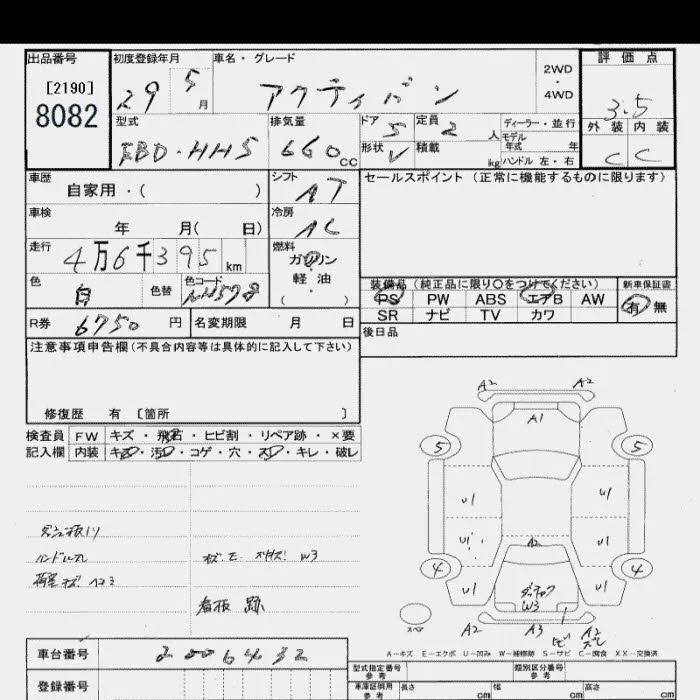 出品番号
[2190]
8082
初度登録年月
29 5月
車名・グレード
アクティバン
2WD
・
4WD
評価点
3.5
外装 内装
C C
型式
EBD-HH5
排気量
660cc
ドア 5
形状 V
定員 2人
積載 kg
ディーラー・並行
モデル
年式 年
ハンドル 左・右
車歴
自家用・( )
シフト
AT
セールスポイント(正常に機能するものに限ります)
車検
年 月( 日)
冷房
AC
走行
4万6千395km
燃料
ガソリン
・
軽油
( )
色
白
色替
色コード
NH578
装備品(純正品に限り○をつけてください)
新車保証書
PS PW ABS エアB AW
有 無
SR ナビ TV カワ
R券 6750円
名変期限 月 日
後日品
注意事項申告欄(不具合内容等は具体的に記入して下さい)
修復歴 有 [箇所 ]
検査員
記入欄
FW キズ・飛石・ヒビ割・リペア跡・×要
内装 キズ・汚れ・コゲ・穴・スレ・キレ・破レ
ハンドルスレ
W3
看板跡
A2 A2
A1
5 5
U1 U1
U1 A2 U1
4 4
U1 U1
W3
A2 A3 A2
スレ
スペア
A-キズ E-エクボ U-凹み W-補修跡 S-サビ C-腐食 XX-交換済
車台番号
2006432
登録番号
型式指定番号
参考
類別区分番号
参考
車庫証明用
参考
長さ cm
幅 cm
高さ cm